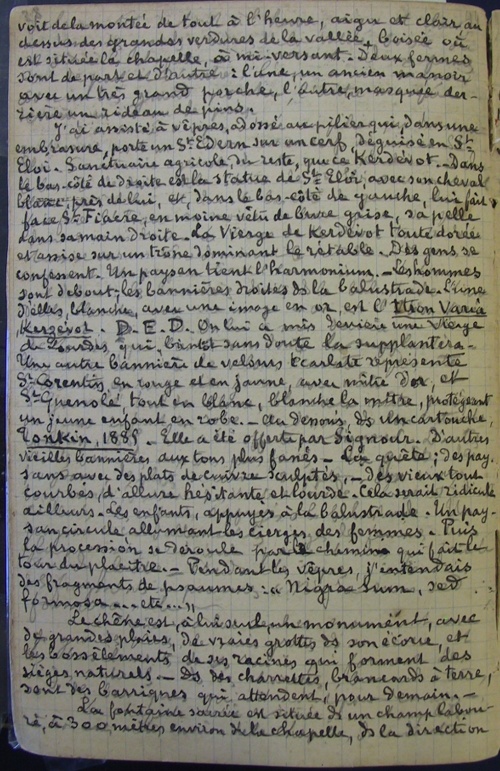 voit de la montée de tout à l'heure, aigu et clair au
dessus des grandes verdures de la vallée boisée où
est située la chapelle, à mi-versant. Deux fermes
sont de part et d'autre : l'une, un ancien manoir
avec un très grand porche, l'autre, masquée der-
rière un rideau de pins.
J'ai assisté à vêpres, adossé au pilier qui, dans une
embrasure, porte un St Edern sur un cerf, déguisé en St
Eloi. Sanctuaire agricole du reste, que ce Kerdévot. Dans
le bas-côté de droite est la statue de St Eloi, avec son cheval
blanc, près de lui, et, dans le bas-côté de gauche, lui fait
face St Fiacre, en moine vêtu de bure grise, sa pelle
dans sa main droite. La Vierge de Kerdévot toute dorée
est assise sur un trône dominant le rétable. Des gens se
confessent. Un paysan tient l'harmonium. – Les hommes
sont debout ; les bannières droites de la balustrade. L'une
d'elles, blanche, avec une image en or, est l'Itron Varia
Kerzévot. D. E. D. On lui a mis derrière une Vierge
de Lourdes, qui, bientôt sans doute la supplantera –
Une autre bannière de velours écarlate représente
St Corentin, en rouge et en jaune, avec mitre d'or, et
St Guénolé, tout en blanc, blanche la mitre, protégeant
un jeune enfant en robe. – Au dessous, ds un cartouche,
Tonkin, 1885. Elle a été offerte par Signour. D'autres
vieilles bannières aux tons plus fanés – La quête ; des pay-
sans avec des plats de cuivre sculptés, – des vieux tout
courbés, d'allure hésitante et lourde. Cela serait ridicule
ailleurs. Les enfants, appuyés à la balustrade. Un pay-
san circule allumant les cierges des femmes. Puis
la procession se déroule par le chemin qui fait le
tour du placître. – Pendant les vêpres, j'entendais
des fragments de psaumes : « Nigra sum, sed
formosa.... etc... »
Le chêne est, à lui seul, un monument, avec
de grandes plaies, de vraies grottes ds son écorce, et
les bossèlements de ses racines qui forment des
sièges naturels. – Ds des charrettes, brancards à terre,
sont des barriques qui attendent, pour demain. –
La fontaine sacrée est située ds un champ labou-
ré, à 300 mètres environ de la chapelle, ds la direction